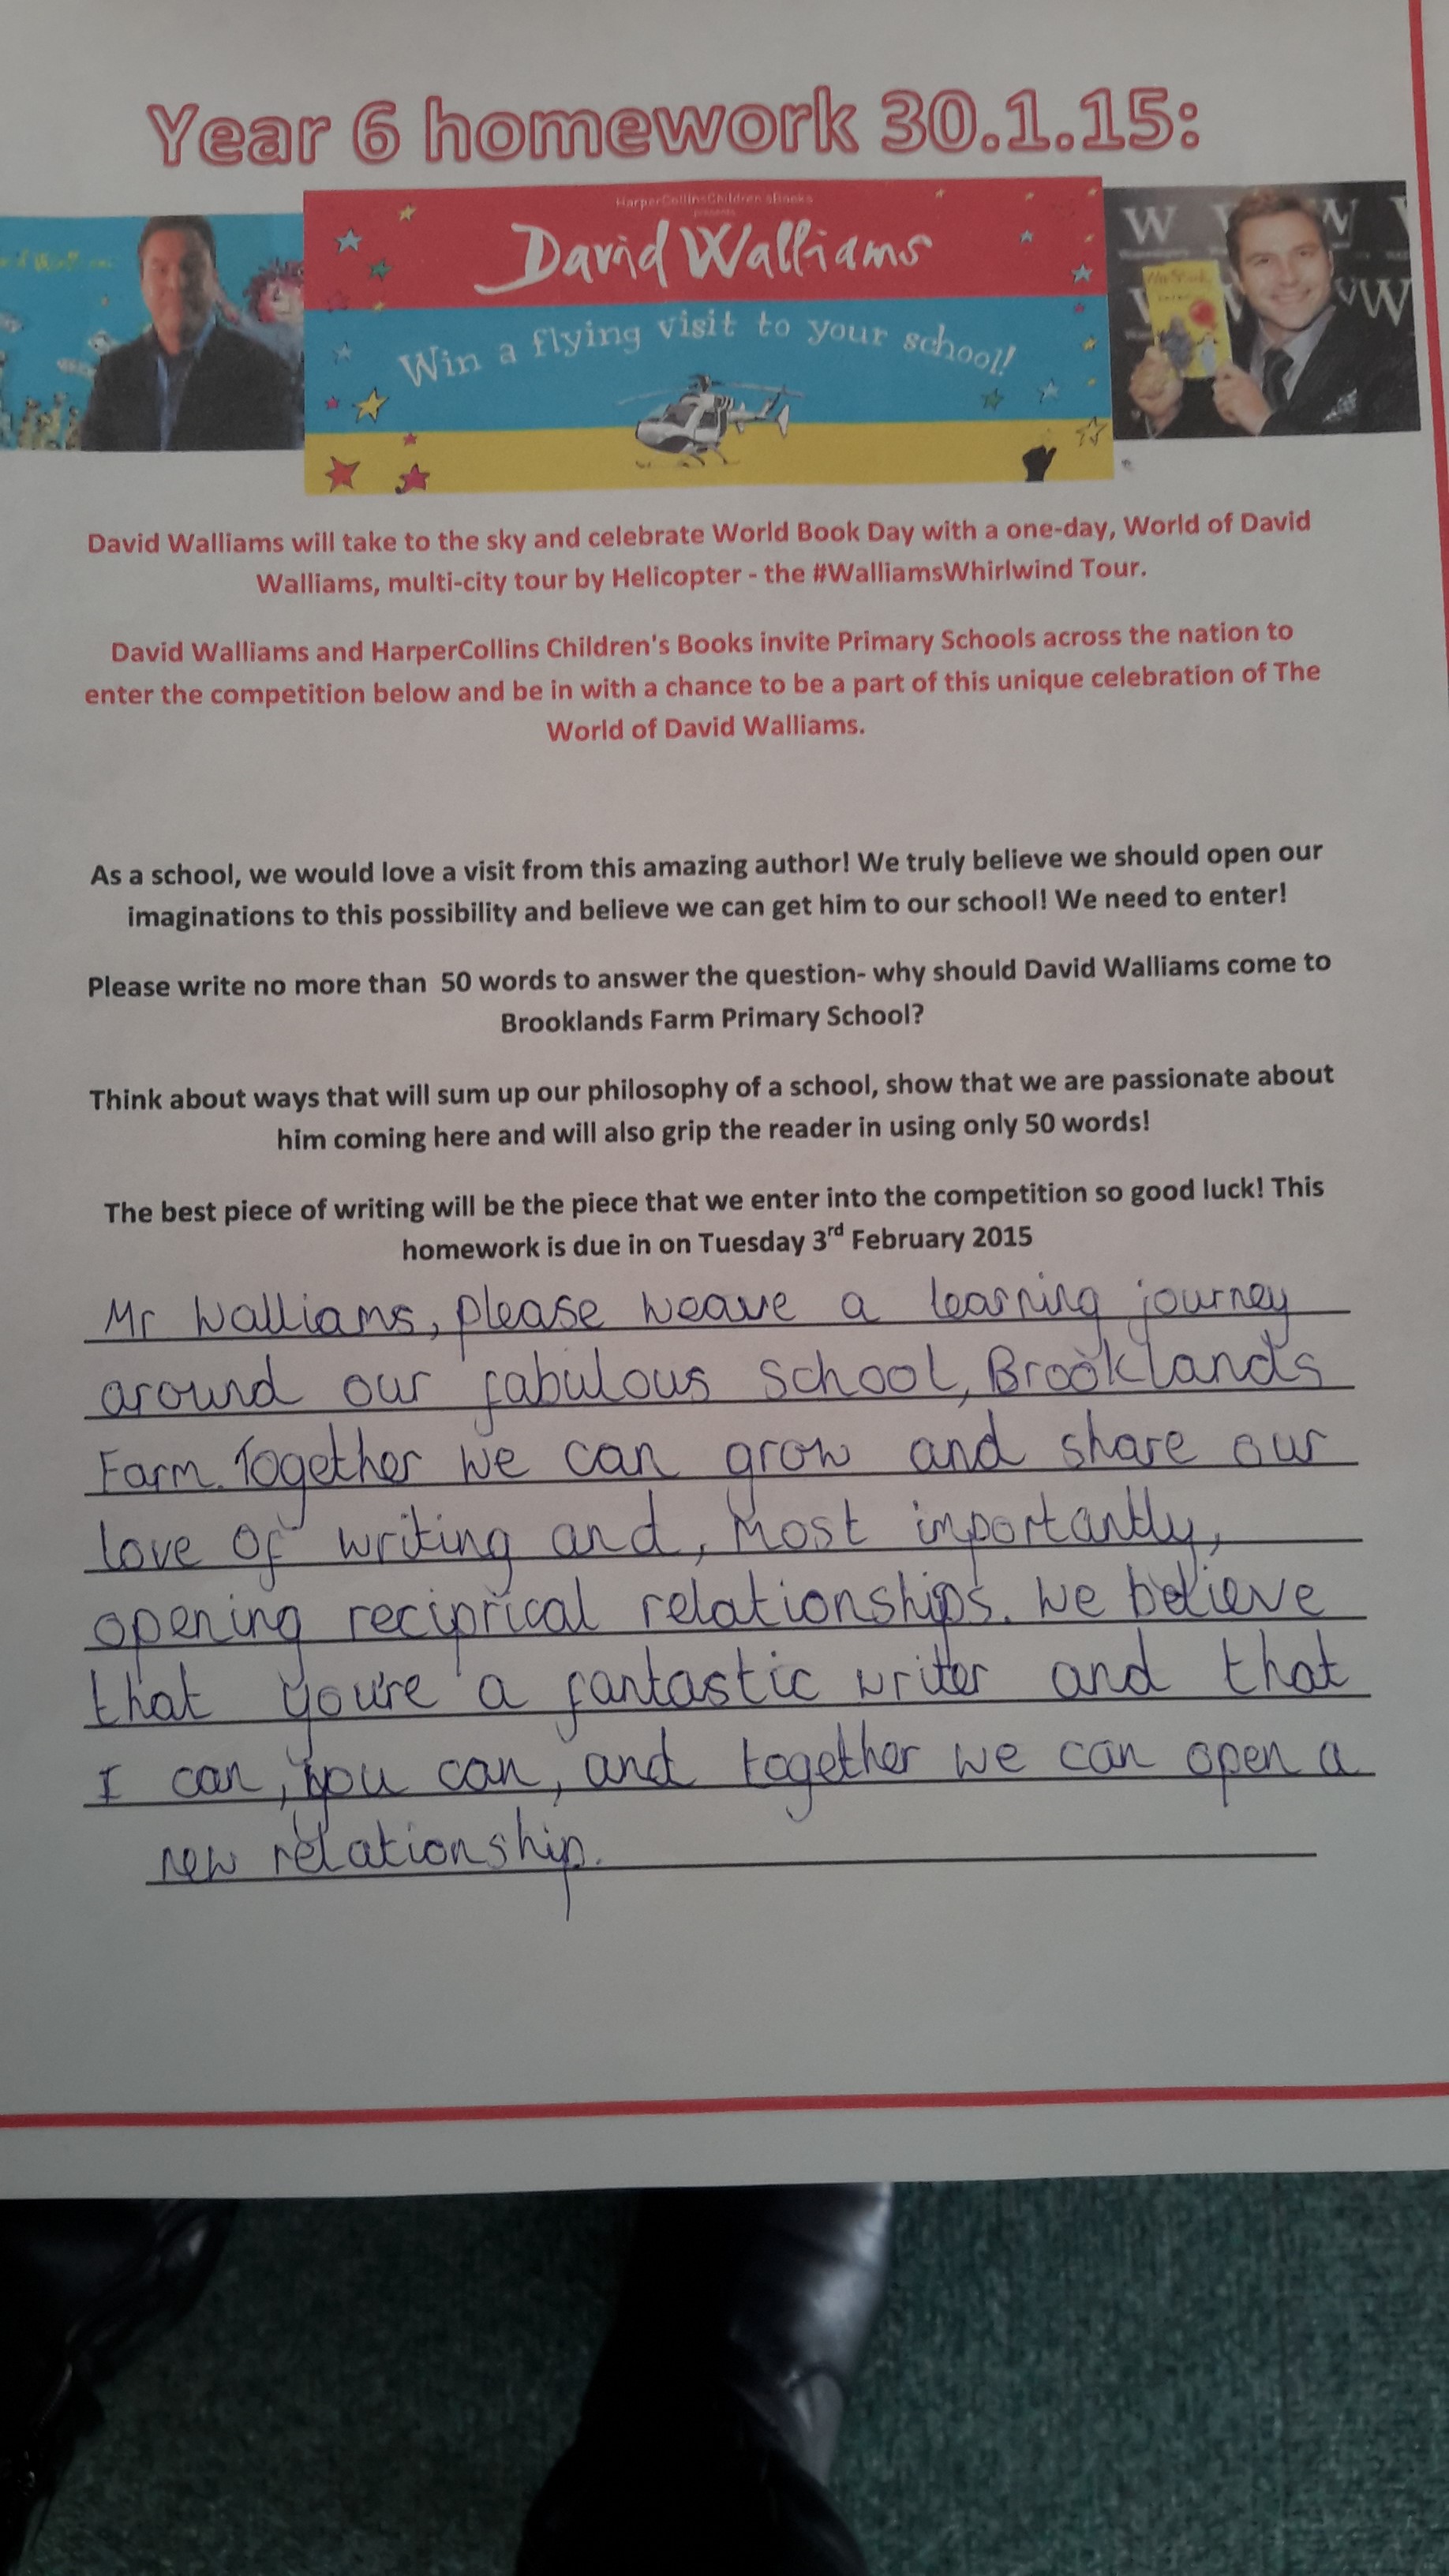 Year 6 homework 30.1.15:
HarperCollinsChildren'sBooks
presents
David Walliams
Win a flying visit to your school!
W
W
David Walliams will take to the sky and celebrate World Book Day with a one-day, World of David
Walliams, multi-city tour by Helicopter - the #WalliamsWhirlwind Tour.
David Walliams and HarperCollins Children's Books invite Primary Schools across the nation to
enter the competition below and be in with a chance to be a part of this unique celebration of The
World of David Walliams.
As a school, we would love a visit from this amazing author! We truly believe we should open our
imaginations to this possibility and believe we can get him to our school! We need to enter!
Please write no more than 50 words to answer the question- why should David Walliams come to
Brooklands Farm Primary School?
Think about ways that will sum up our philosophy of a school, show that we are passionate about
him coming here and will also grip the reader in using only 50 words!
The best piece of writing will be the piece that we enter into the competition so good luck! This
homework is due in on Tuesday 3rd February 2015
Mr Walliams, please weave a learning journey
around our fabulous school, Brooklands
Farm. Together we can grow and share our
love of writing and, most importantly,
opening reciprical relationships. We believe
that you're a fantastic writer and that
I can, you can, and together we can open a
new relationship.